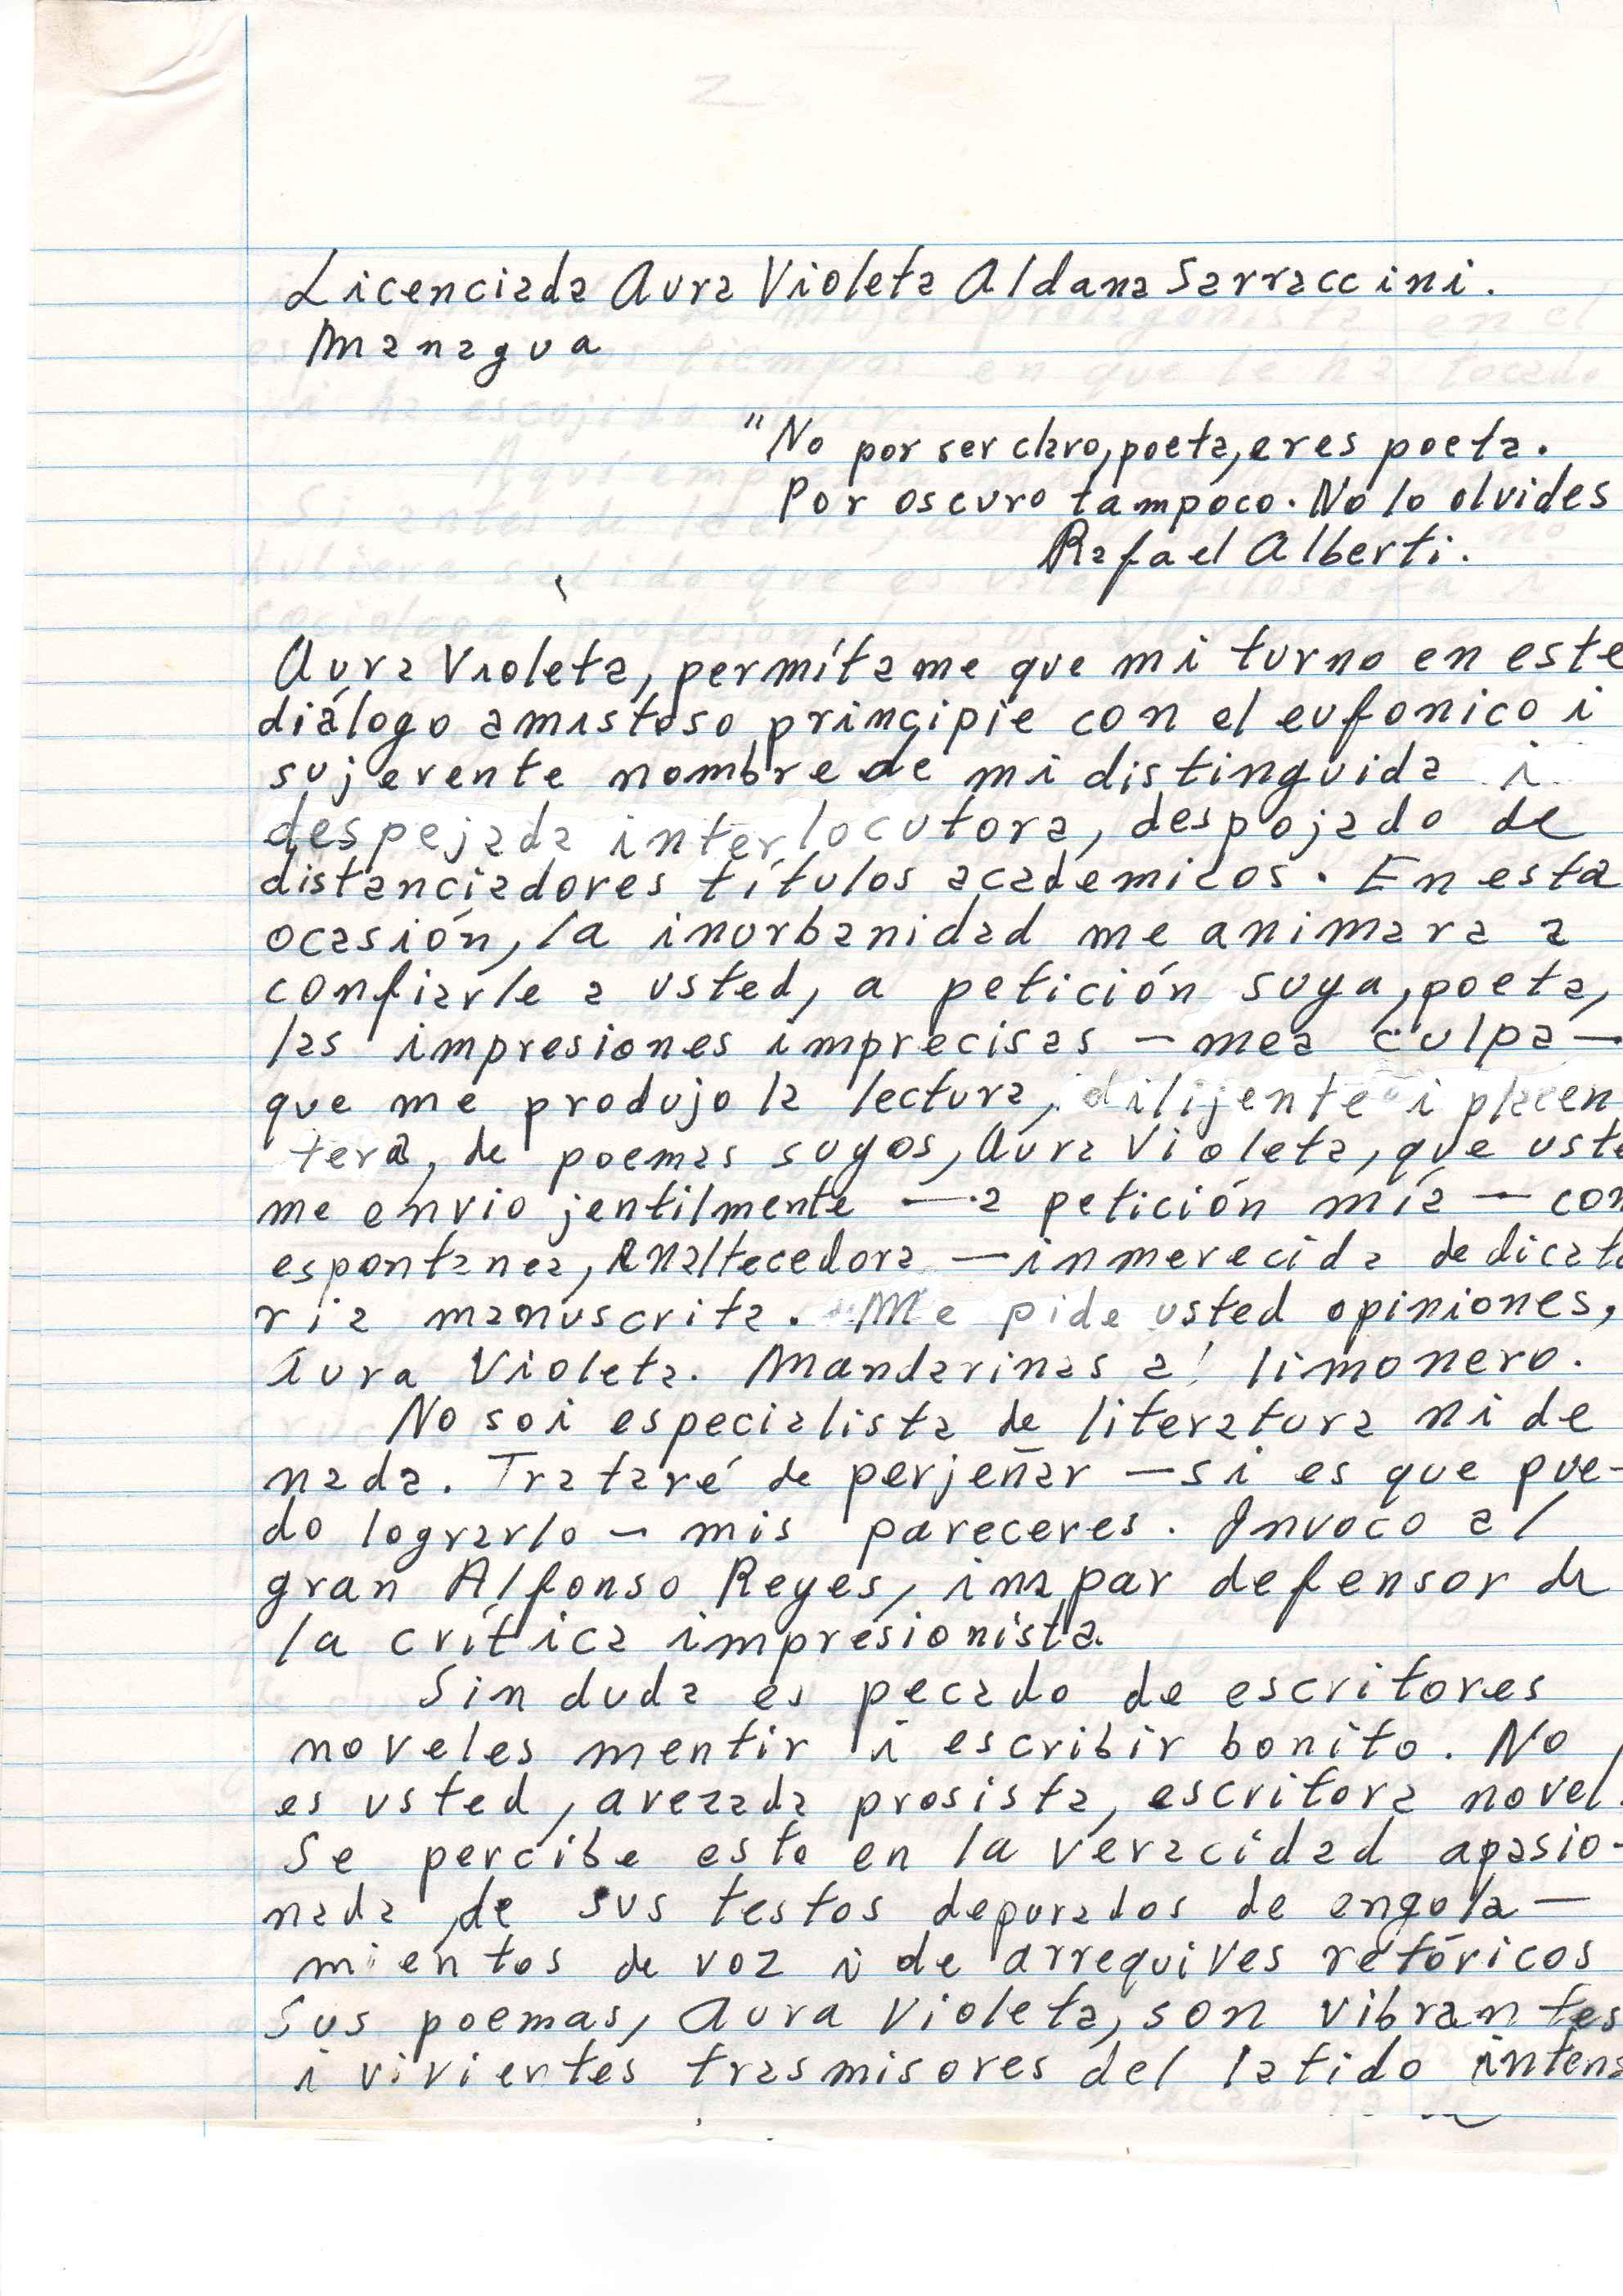 Licenciada Aura Violeta Aldana Sarraccini.
Managua
"No por ser claro, poeta, eres poeta.
Por oscuro tampoco. No lo olvides
Rafael Alberti.
Aura Violeta, permítame que mi turno en este
diálogo amistoso principie con el eufonico i
sujerente nombre de mi distinguida i
despejada interlocutora, despojado de
distanciadores títulos academicos. En esta
ocasión, la inurbanidad me animara a
confiarle a usted, a petición suya, poeta,
las impresiones imprecisas — mea culpa —
que me produjo la lectura, dilijente i placen
tera, de poemas suyos, Aura Violeta, que uste
me envio jentilmente — a petición mía — con
espontanea, enaltecedora — inmerecida dedicato
ria manuscrita. Me pide usted opiniones,
Aura Violeta. Mandarinas al limonero.
No soi especialista de literatura ni de
nada. Trataré de perjeñar — si es que pue-
do lograrlo — mis pareceres. Invoco al
gran Alfonso Reyes, inapar defensor de
la crítica impresionista.
Sin duda es pecado de escritores
noveles mentir i escribir bonito. No
es usted, avezada prosista, escritora novel.
Se percibe esto en la veracidad apasio-
nada de sus testos depurados de engola—
mientos de voz i de arrequives retóricos
Sus poemas, Aura Violeta, son vibrantes
i vivientes trasmisores del latido intens